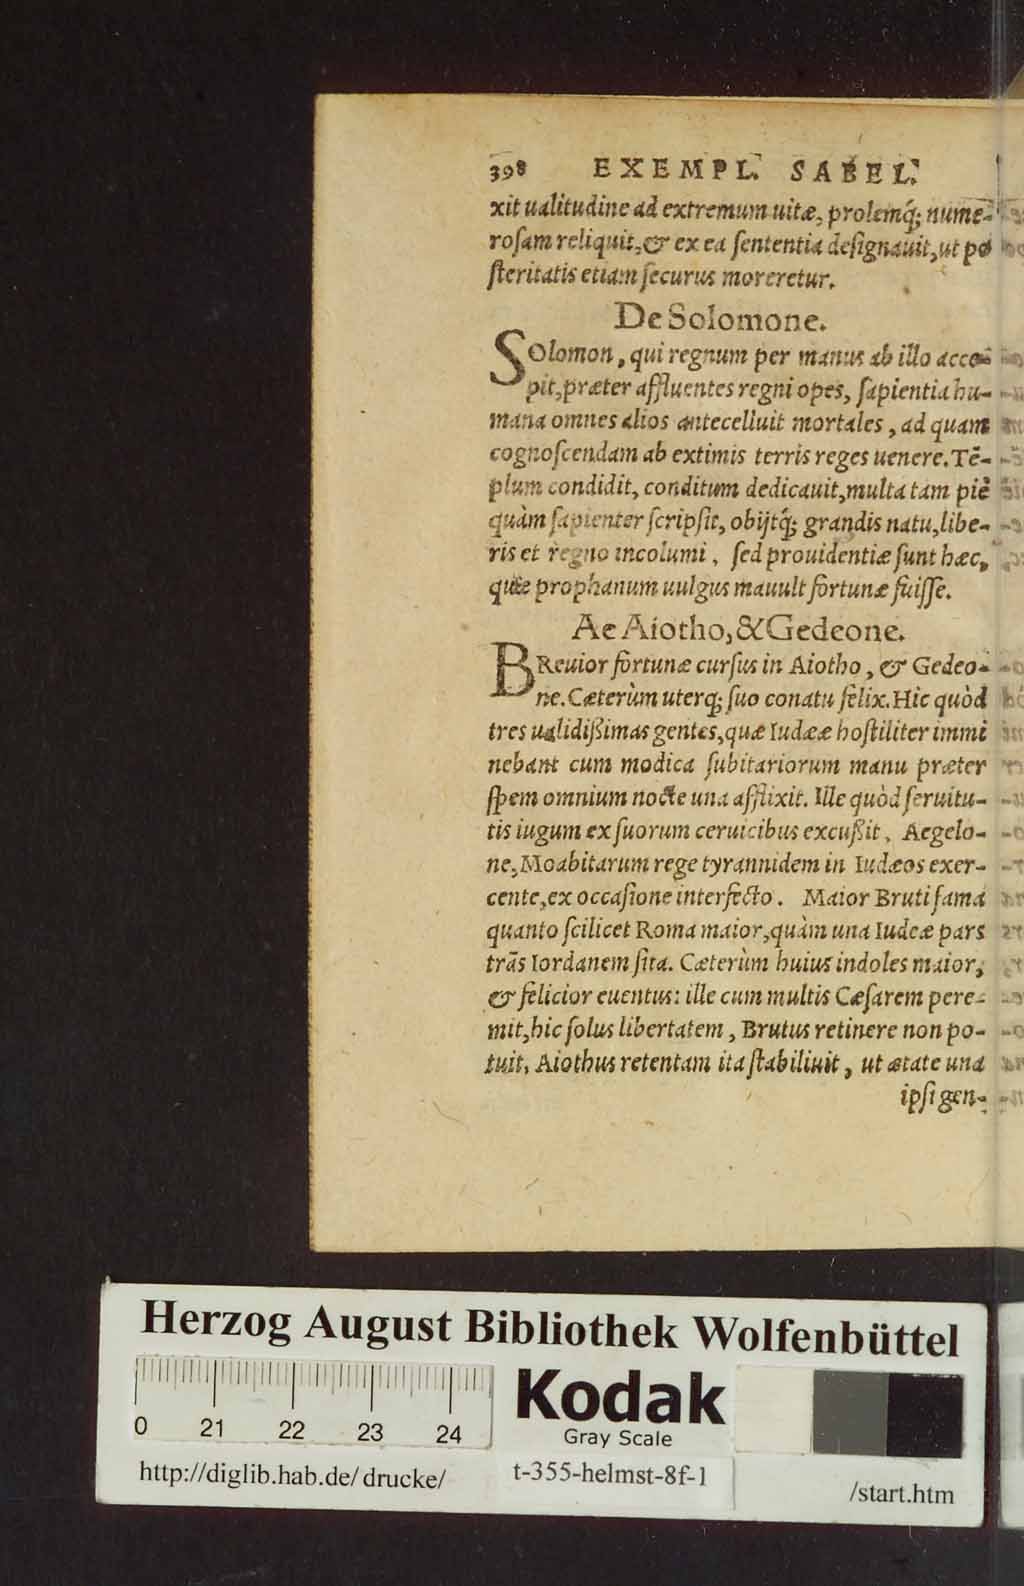 398 EXEMPL. SABEL.
xit ualitudine ad extremum uitæ, prolemq́; nume-
rosam reliquit, & ex ea sententia designauit, ut po
steritatis etiam securus moreretur.
De Solomone.
SOlomon, qui regnum per manus ab illo acce-
pit, præter affluentes regni opes, sapientia hu-
mana omnes alios antecelluit mortales, ad quam
cognoscendam ab extimis terris reges uenere. Tē-
plum condidit, conditum dedicauit, multa tam piè
quàm sapienter scripsit, obijtq́; grandis natu, libe-
ris et regno incolumi, sed prouidentiæ sunt hæc,
quæ prophanum uulgus mauult fortunæ fuisse.
Ae Aiotho, & Gedeone.
BReuior fortunæ cursus in Aiotho, & Gedeo-
ne. Cæterùm uterq; suo conatu felix. Hic quòd
tres ualidißimas gentes, quæ Iudææ hostiliter immi
nebant cum modica subitariorum manu præter
spem omnium nocte una afflixit. Ille quòd seruitu-
tis iugum ex suorum ceruicibus excußit, Aegelo-
ne, Moabitarum rege tyrannidem in Iudæos exer-
cente, ex occasione interfecto. Maior Bruti fama
quanto scilicet Roma maior, quàm una Iudeæ pars
trās Iordanem sita. Cæterùm huius indoles maior,
& felicior euentus: ille cum multis Cæsarem pere-
mit, hic solus libertatem, Brutus retinere non po-
tuit, Aiothus retentam ita stabiliuit, ut ætate una
ipsi gen-
Herzog August Bibliothek Wolfenbüttel
0 21 22 23 24
Kodak
Gray Scale
http://diglib.hab.de/drucke/ t-355-helmst-8f-1 /start.htm